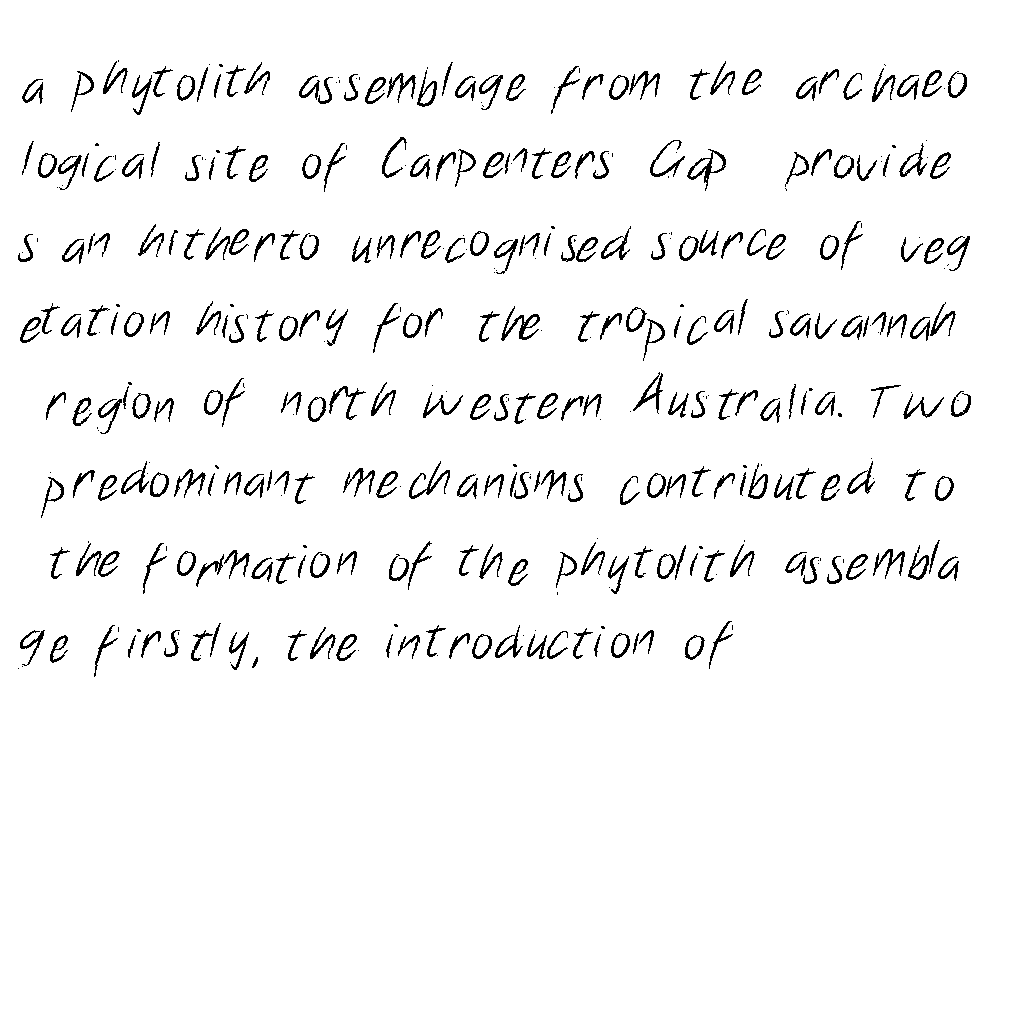 a phytolith assemblage from the archaeo
logical site of Carpenters Gap provide
s an hitherto unrecognised source of veg
etation history for the tropical savannah
region of north western Australia. Two
predominant mechanisms contributed to
the formation of the phytolith assembla
ge firstly, the introduction of